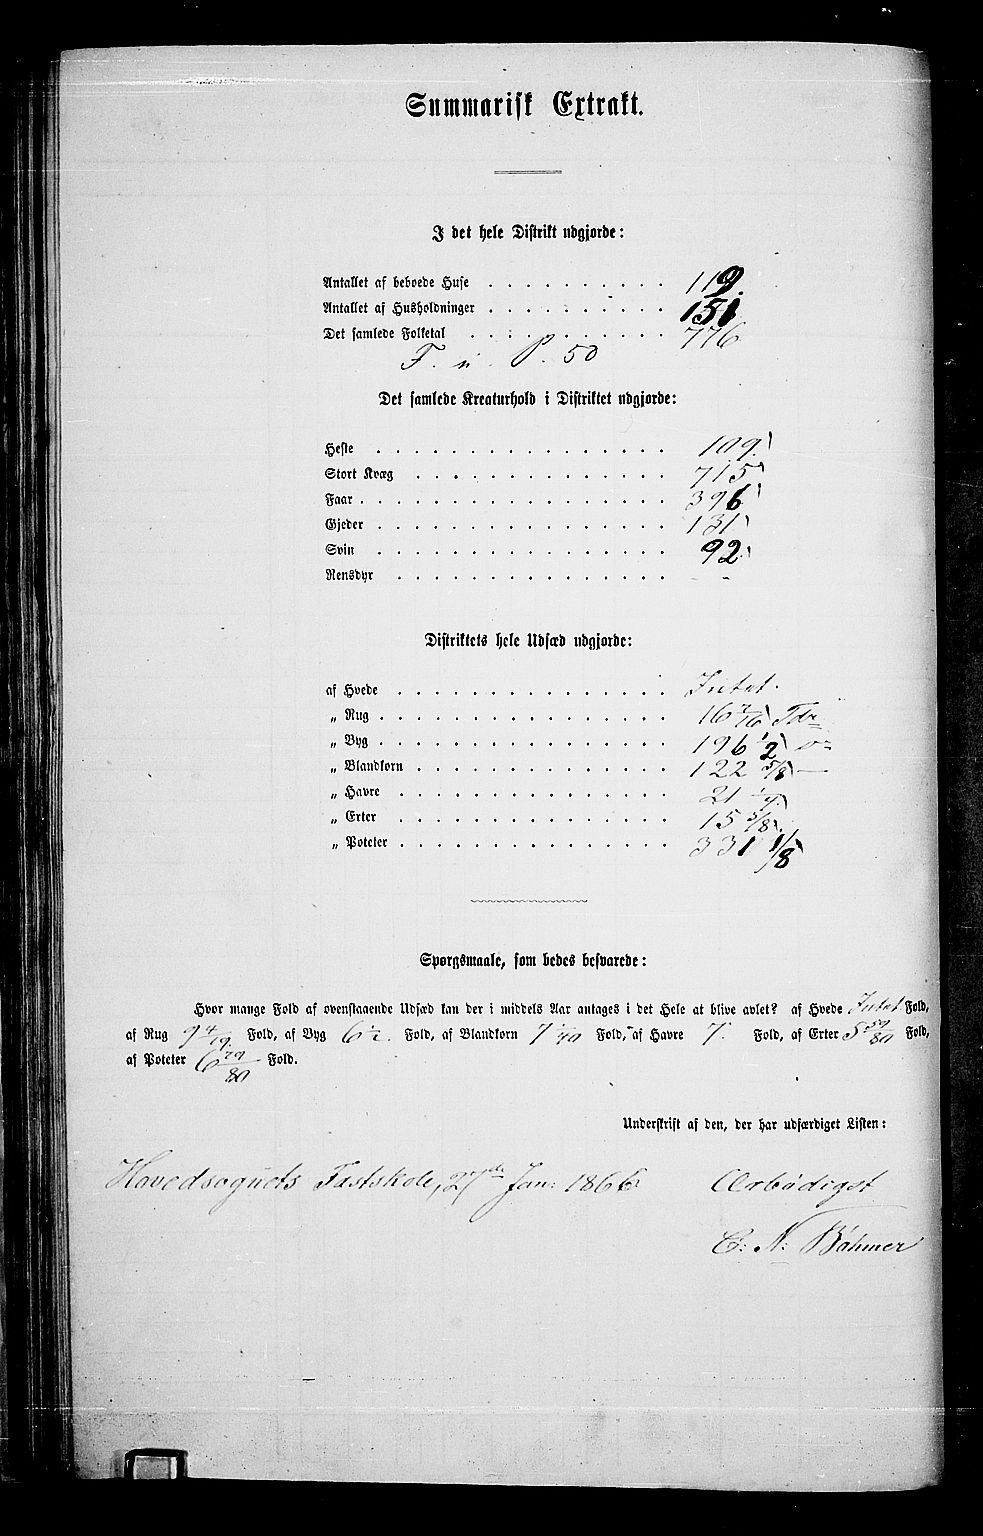 Summarisk Extrakt.
I det hele Distrikt udgjorde:
Antallet af beboede Huse . . . . . . . . . . 119.
Antallet af Husholdninger . . . . . . . . . . 151
Det samlede Folketal . . . . . . . . . . 776
F. u. P. 50
Det samlede Kreaturhold i Distriktet udgjorde:
Heste . . . . . . . . . . . . . . . 109.
Stort Kvæg . . . . . . . . . . . . . 715
Faar . . . . . . . . . . . . . . . . 396
Gjeder . . . . . . . . . . . . . . . 131
Svin . . . . . . . . . . . . . . . 92.
Rensdyr . . . . . . . . . . . . . . - -
Distriktets hele Udsæd udgjorde:
af Hvede . . . . . . . . . . . . . . Intet.
„ Rug . . . . . . . . . . . . . . . 16 Tdr
„ Byg . . . . . . . . . . . . . . . 196 1/2
„ Blandkorn . . . . . . . . . . . . . 122 5/8 —
„ Havre . . . . . . . . . . . . . . 21
„ Erter . . . . . . . . . . . . . . 15 5/8.
„ Poteter . . . . . . . . . . . . . . 331 1/8
Spørgsmaale, som bedes besvarede:
Hvor mange Fold af ovenstaaende Udsæd kan der i middels Aar antages i det Hele at blive avlet? af Hvede Intet Fold,
af Rug 9 4/19. Fold, af Byg 6 1/2. Fold, af Blandkorn 7 1/40 Fold, af Havre 7. Fold, af Erter 5 59/80 Fold,
af Poteter 6 79/80 Fold.
Underskrift af den, der har udfærdiget Listen:
Hovedsognets Fastskole, 27de Jan: 1866 Ærbødigst
C: N: Bøhmer